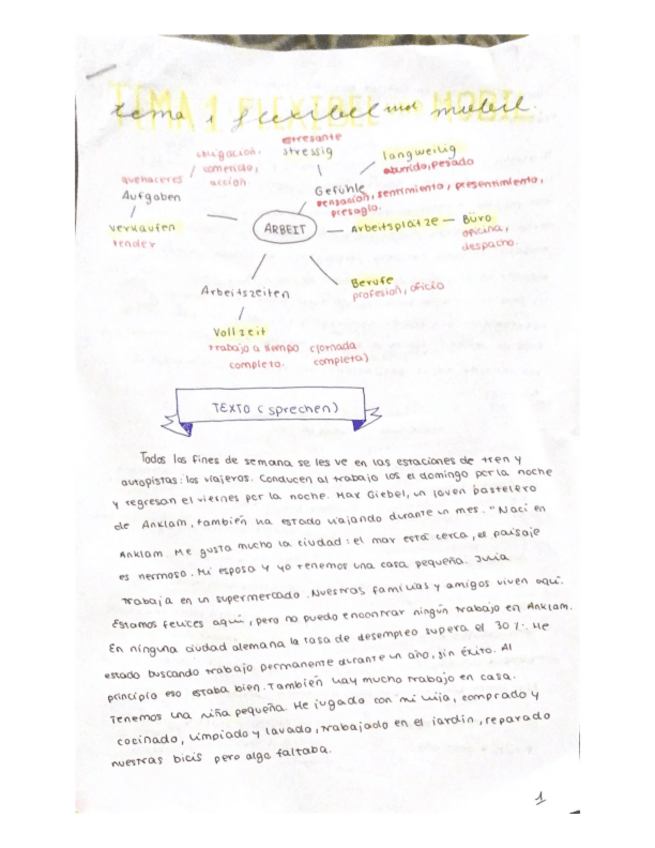 TEMA 1 FLEXIBEL und MOBIL
tema 1 flexibel und mobil.
estresante
stressig
obligación.
comercio,
acción
quehaceres
Aufgaben
verkaufen
vender
langweilig
aburrido, pesado
Gefühle
sensación, sentimiento, presentimiento,
presagio.
ARBEIT
Arbeitsplätze — Büro
oficina,
despacho.
Arbeitszeiten
Berufe
profesion, oficio
Vollzeit
trabajo a tiempo (jornada
completo. completa)
TEXTO (sprechen)
Todos los fines de semana se les ve en las estaciones de tren y
autopistas: los viajeros. Conducen al trabajo los el domingo por la noche
y regresan el viernes por la noche. Max Giebel, un joven pastelero
de Anklam, también ha estado viajando durante un mes. "Nací en
Anklam. Me gusta mucho la ciudad: el mar está cerca, el paisaje
es hermoso. Mi esposa y yo tenemos una casa pequeña. Julia
trabaja en un supermercado. Nuestras familias y amigos viven aquí.
Estamos felices aquí, pero no puedo encontrar ningún trabajo en Anklam.
En ninguna ciudad alemana la tasa de desempleo supera el 30%. He
estado buscando trabajo permanente durante un año, sin éxito. Al
principio eso estaba bien. También hay mucho trabajo en casa.
Tenemos una niña pequeña. He jugado con mi hija, comprado y
cocinado, limpiado y lavado, trabajado en el jardín, reparado
nuestras bicis pero algo faltaba.
1